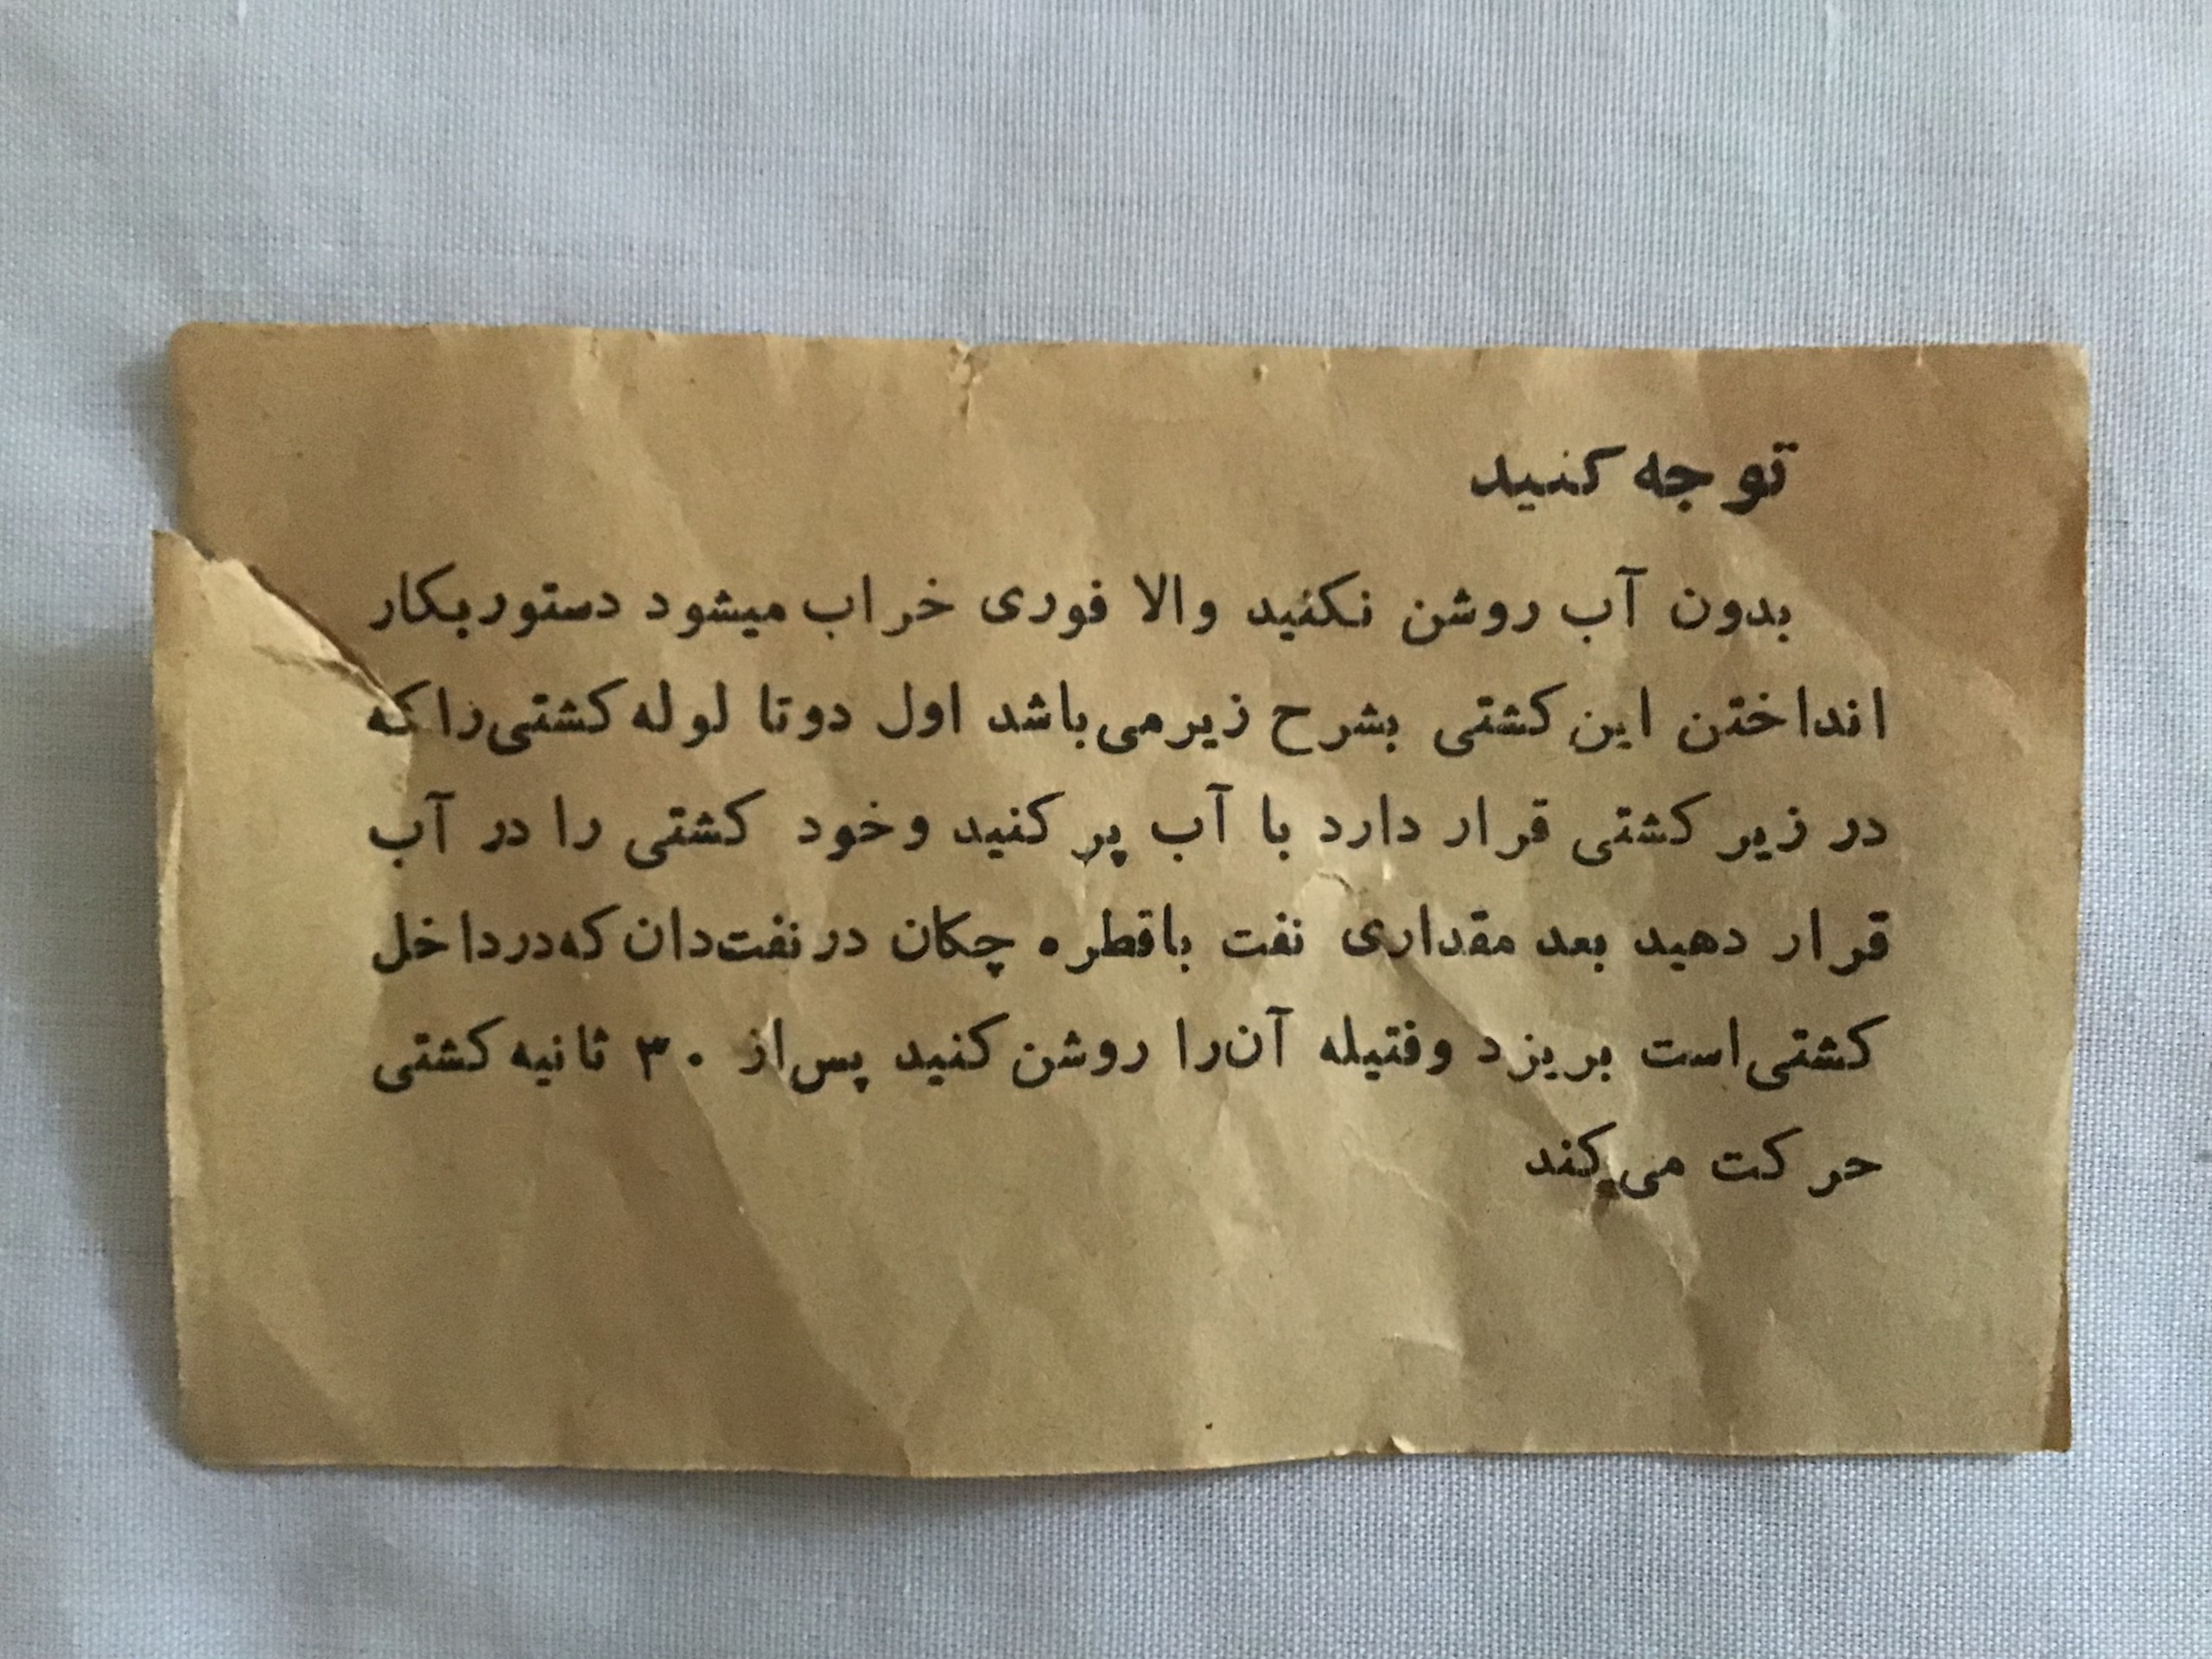 توجه کنید
بدون آب روشن نکنید والا فوری خراب میشود دستور بکار
انداختن این کشتی بشرح زیر می‌باشد اول دوتا لوله کشتی را که
در زیر کشتی قرار دارد با آب پر کنید و خود کشتی را در آب
قرار دهید بعد مقداری نفت باقطره چکان در نفت‌دان که در داخل
کشتی است بریزد وفتیله آن‌را روشن کنید پس از ۳۰ ثانیه کشتی
حرکت می‌کند